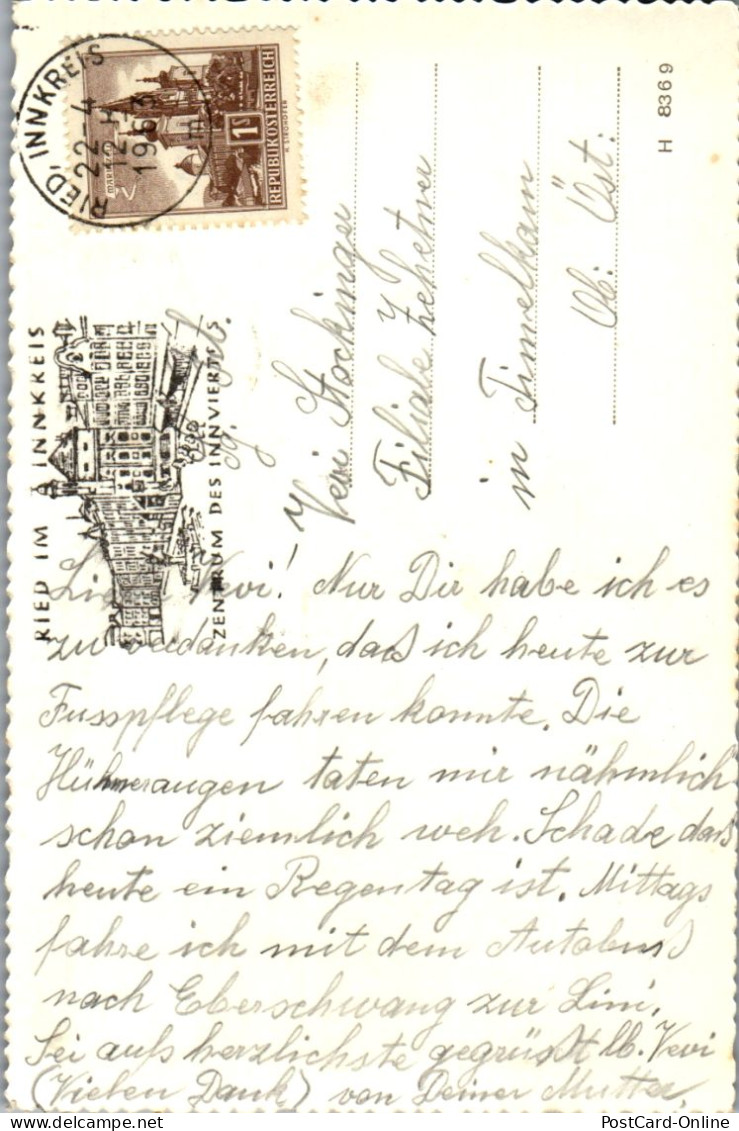 RIED, INNKREIS
22-4
12 H
1963
m
MARIAZELL
1S
REPUBLIK ÖSTERREICH
RIED IM INNKREIS
ZENTRUM DES INNVIERTELS
H 8369
Vevi Stockinger
Filiale Zehetner
in Timelkam
Ob: Öst:
Liebe Vevi! Nur Dir habe ich es
zu verdanken, daß ich heute zur
Fusspflege fahren konnte. Die
Hühneraugen taten mir nähmlich
schon ziemlich weh. Schade daß
heute ein Regentag ist. Mittags
fahre ich mit dem Autobuß
nach Eberschwang zur Lini.
Sei aufs herzlichste gegrüßt lb. Vevi
(Vielen Dank) von Deiner Mutter.
PostCard-Online